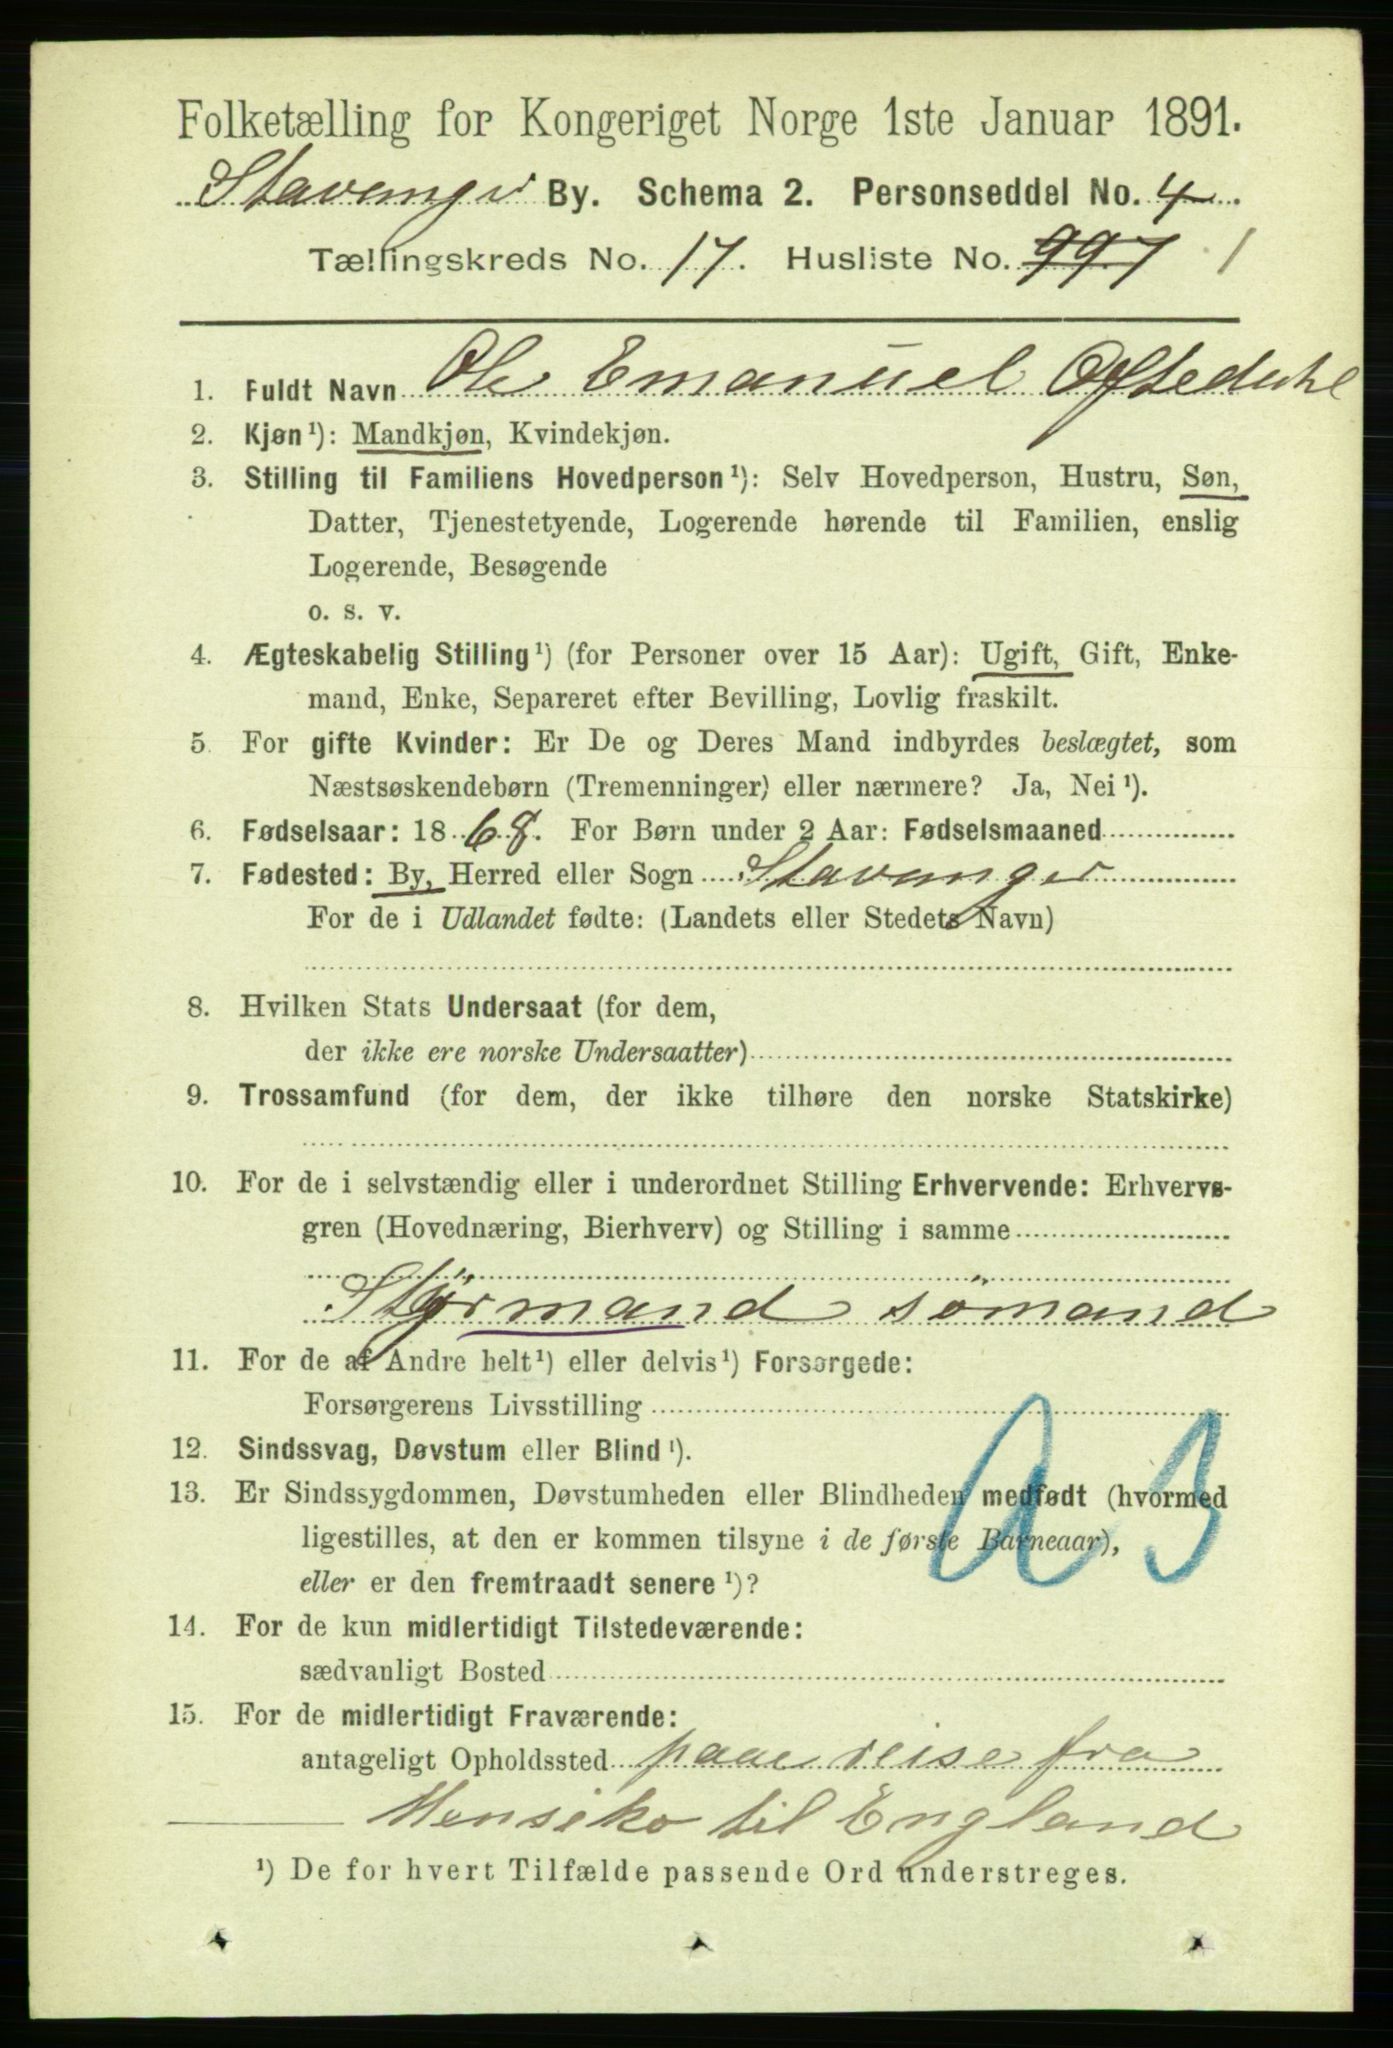 Folketælling for Kongeriget Norge 1ste Januar 1891.
Stavanger By. Schema 2. Personseddel No. 4.
Tællingskreds No. 17. Husliste No. 997 1
1. Fuldt Navn Ole Emanuel Oftedahl
2. Kjøn¹): Mandkjøn, Kvindekjøn.
3. Stilling til Familiens Hovedperson¹): Selv Hovedperson, Hustru, Søn,
Datter, Tjenestetyende, Logerende hørende til Familien, enslig
Logerende, Besøgende
o. s. v.
4. Ægteskabelig Stilling¹) (for Personer over 15 Aar): Ugift, Gift, Enke-
mand, Enke, Separeret efter Bevilling, Lovlig fraskilt.
5. For gifte Kvinder: Er De og Deres Mand indbyrdes beslægtet, som
Næstsøskendebørn (Tremenninger) eller nærmere? Ja, Nei¹).
6. Fødselsaar: 1868. For Børn under 2 Aar: Fødselsmaaned
7. Fødested: By, Herred eller Sogn Stavanger
For de i Udlandet fødte: (Landets eller Stedets Navn)
8. Hvilken Stats Undersaat (for dem,
der ikke ere norske Undersaatter)
9. Trossamfund (for dem, der ikke tilhøre den norske Statskirke)
10. For de i selvstændig eller i underordnet Stilling Erhvervende: Erhvervs-
gren (Hovednæring, Bierhverv) og Stilling i samme
Styrmand sömand
11. For de af Andre helt¹) eller delvis¹) Forsørgede:
Forsørgerens Livsstilling
12. Sindssvag, Døvstum eller Blind¹).
13. Er Sindssygdommen, Døvstumheden eller Blindheden medfødt (hvormed
ligestilles, at den er kommen tilsyne i de første Barneaar),
eller er den fremtraadt senere¹)?
14. For de kun midlertidigt Tilstedeværende:
sædvanligt Bosted
15. For de midlertidigt Fraværende:
antageligt Opholdssted paa reise fra
Mensiko til England
¹) De for hvert Tilfælde passende Ord understreges.